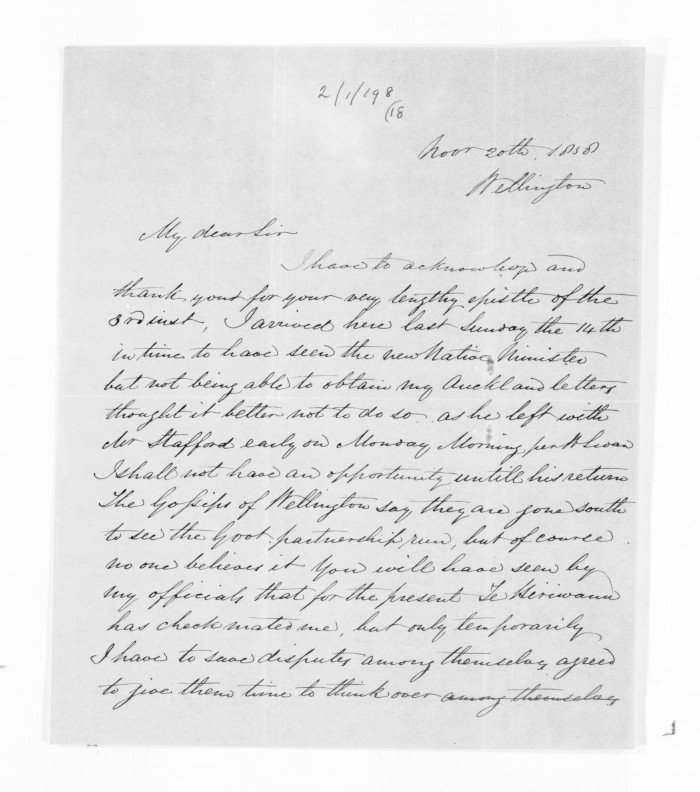 2/1/198
(18
Novr 20th. 1858
Wellington
My dear Sir
I have to acknowlege and
thank you for your very lengthy epistle of the
3rd inst, I arrived here last Sunday the 14th
in time to have seen the new Native Minister
but not being able to obtain my Auckland letters
thought it better not to do so. as he left with
Mr Stafford early on Monday Morning per W Swan
I shall not have an opportunity untill his return
The Gossips of Wellington say they are gone south
to see the Govt. partnership run, but of course
no one believes it You will have seen by
my officials that for the present Te
has check mated me, but only temporarily
I have to save disputes among themselves agreed
to give them time to think over among themselves